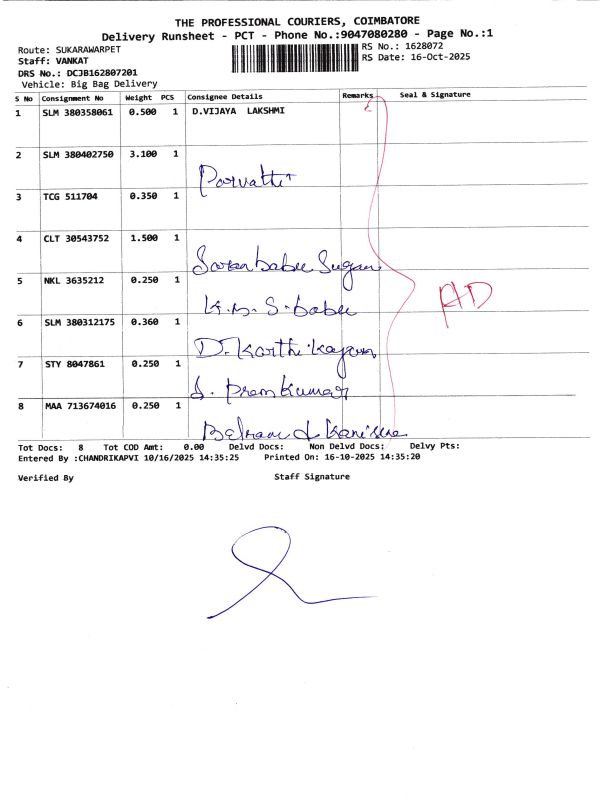 THE PROFESSIONAL COURIERS, COIMBATORE
Delivery Runsheet - PCT - Phone No.:9047080280 - Page No.:1
Route: SUKARAWARPET
RS No.: 1628072
Staff: VANKAT
RS Date: 16-Oct-2025
DRS No.: DCJB162807201
Vehicle: Big Bag Delivery
S No Consignment No Weight PCS Consignee Details Remarks Seal & Signature
1 SLM 380358061 0.500 1 D.VIJAYA LAKSHMI
2 SLM 380402750 3.100 1
Parvathi
3 TCG 511704 0.350 1
4 CLT 30543752 1.500 1
Saran babu Sugan
5 NKL 3635212 0.250 1
K.M. S. babu
AD
6 SLM 380312175 0.360 1
D. Karthikayan
7 STY 8047861 0.250 1
S. Prem Kumar
8 MAA 713674016 0.250 1
Tot Docs: 8 Tot COD Amt: 0.00 Delvd Docs: Non Delvd Docs: Delvy Pts:
Entered By :CHANDRIKAPVI 10/16/2025 14:35:25 Printed On: 16-10-2025 14:35:20
Verified By Staff Signature